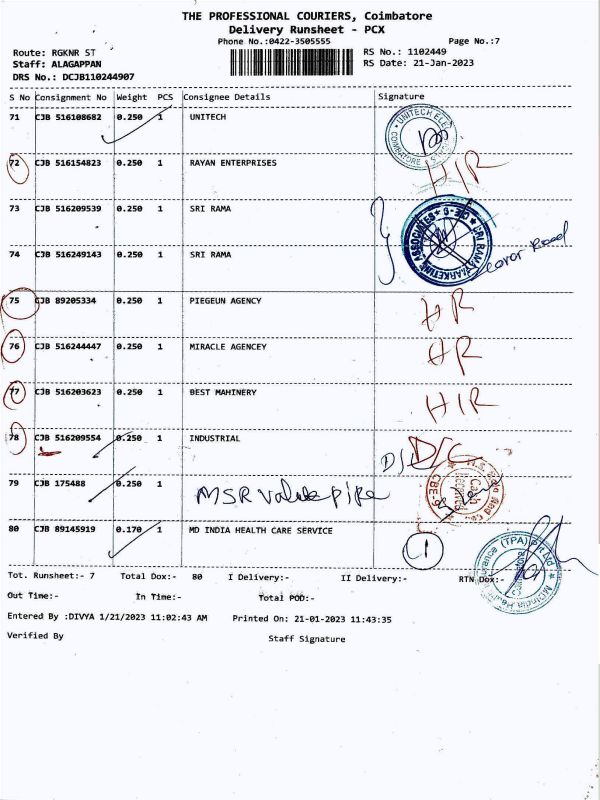 THE PROFESSIONAL COURIERS, Coimbatore
Delivery Runsheet - PCX
Phone No.:0422-3505555 Page No.:7
Route: RGKNR ST RS No.: 1102449
Staff: ALAGAPPAN RS Date: 21-Jan-2023
DRS No.: DCJB110244907
S No Consignment No Weight PCS Consignee Details Signature
71 CJB 516108682 0.250 1 UNITECH
UNITECH ELE
COIMBATORE
72 CJB 516154823 0.250 1 RAYAN ENTERPRISES H/R
73 CJB 516209539 0.250 1 SRI RAMA
SRI RAMA MARKETING ASSOCIATES CBE-9
74 CJB 516249143 0.250 1 SRI RAMA Road
75 CJB 89205334 0.250 1 PIEGEUN AGENCY HR
76 CJB 516244447 0.250 1 MIRACLE AGENCEY HR
77 CJB 516203623 0.250 1 BEST MAHINERY H/R
78 CJB 516209554 0.250 1 INDUSTRIAL D/C
79 CJB 175488 0.250 1 MSR Valve pipe
Cash Received
80 CJB 89145919 0.170 1 MD INDIA HEALTH CARE SERVICE 1
MDIndia Health Insurance (TPA) Pvt Ltd
Tot. Runsheet:- 7 Total Dox:- 80 I Delivery:- II Delivery:- RTN Dox:-
Out Time:- In Time:- Total POD:-
Entered By :DIVYA 1/21/2023 11:02:43 AM Printed On: 21-01-2023 11:43:35
Verified By Staff Signature